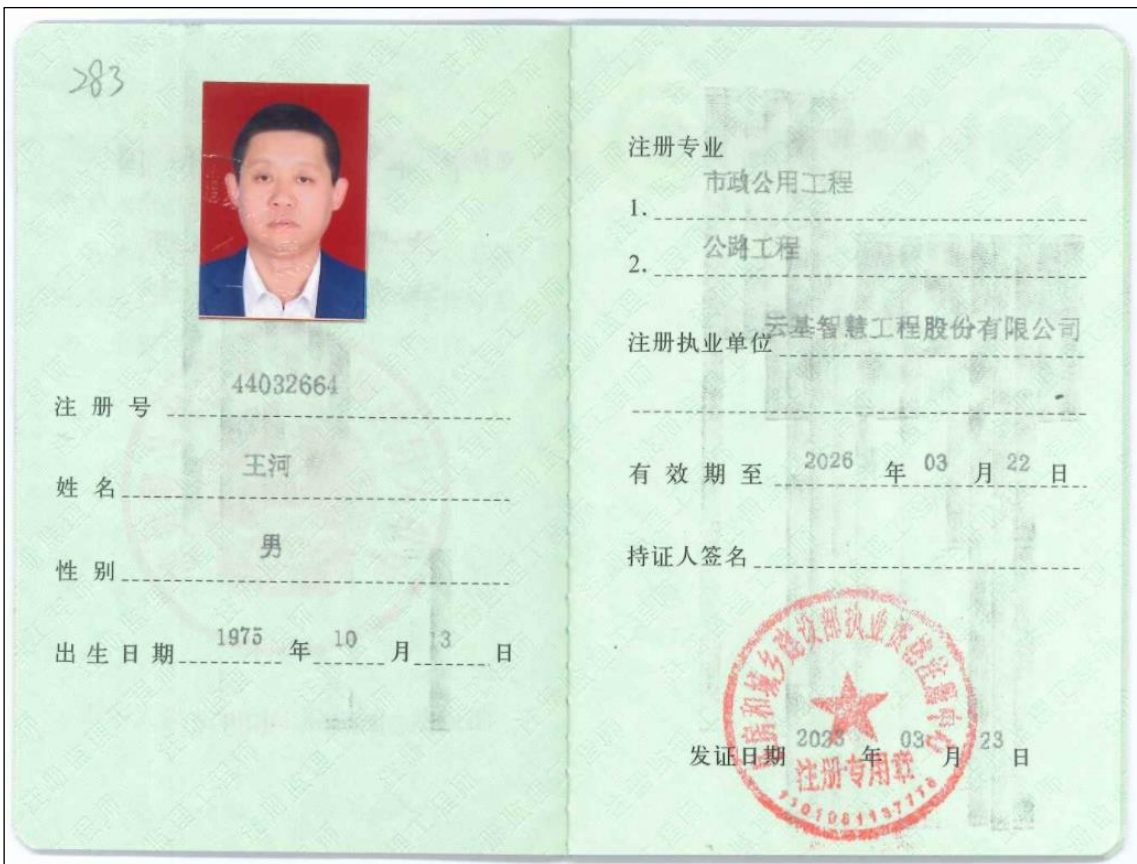 283
注册号 44032664
姓名 王河
性别 男
出生日期 1975 年 10 月 13 日
注册专业
1. 市政公用工程
2. 公路工程
注册执业单位 云基智慧工程股份有限公司
有效期至 2026 年 03 月 22 日
持证人签名
住房和城乡建设部执业资格注册中心
发证日期 2023 年 03 月 23 日
注册专用章